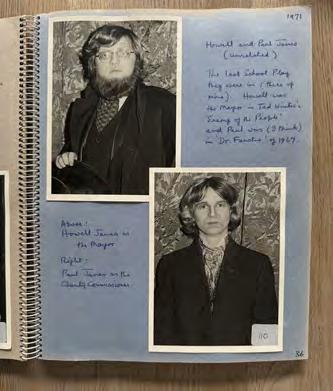 1971
Howell and Paul James
(unrelated)
The last School Play
they were in (three of
mine). Howell was
the Mayor in Ted Winter's
'Enemy of the People'
and Paul was (I think)
in 'Dr. Faustus' of 1967.
Above:
Howell James as
the Mayor
Right:
Paul James as the
Charity Commissioner
110
36